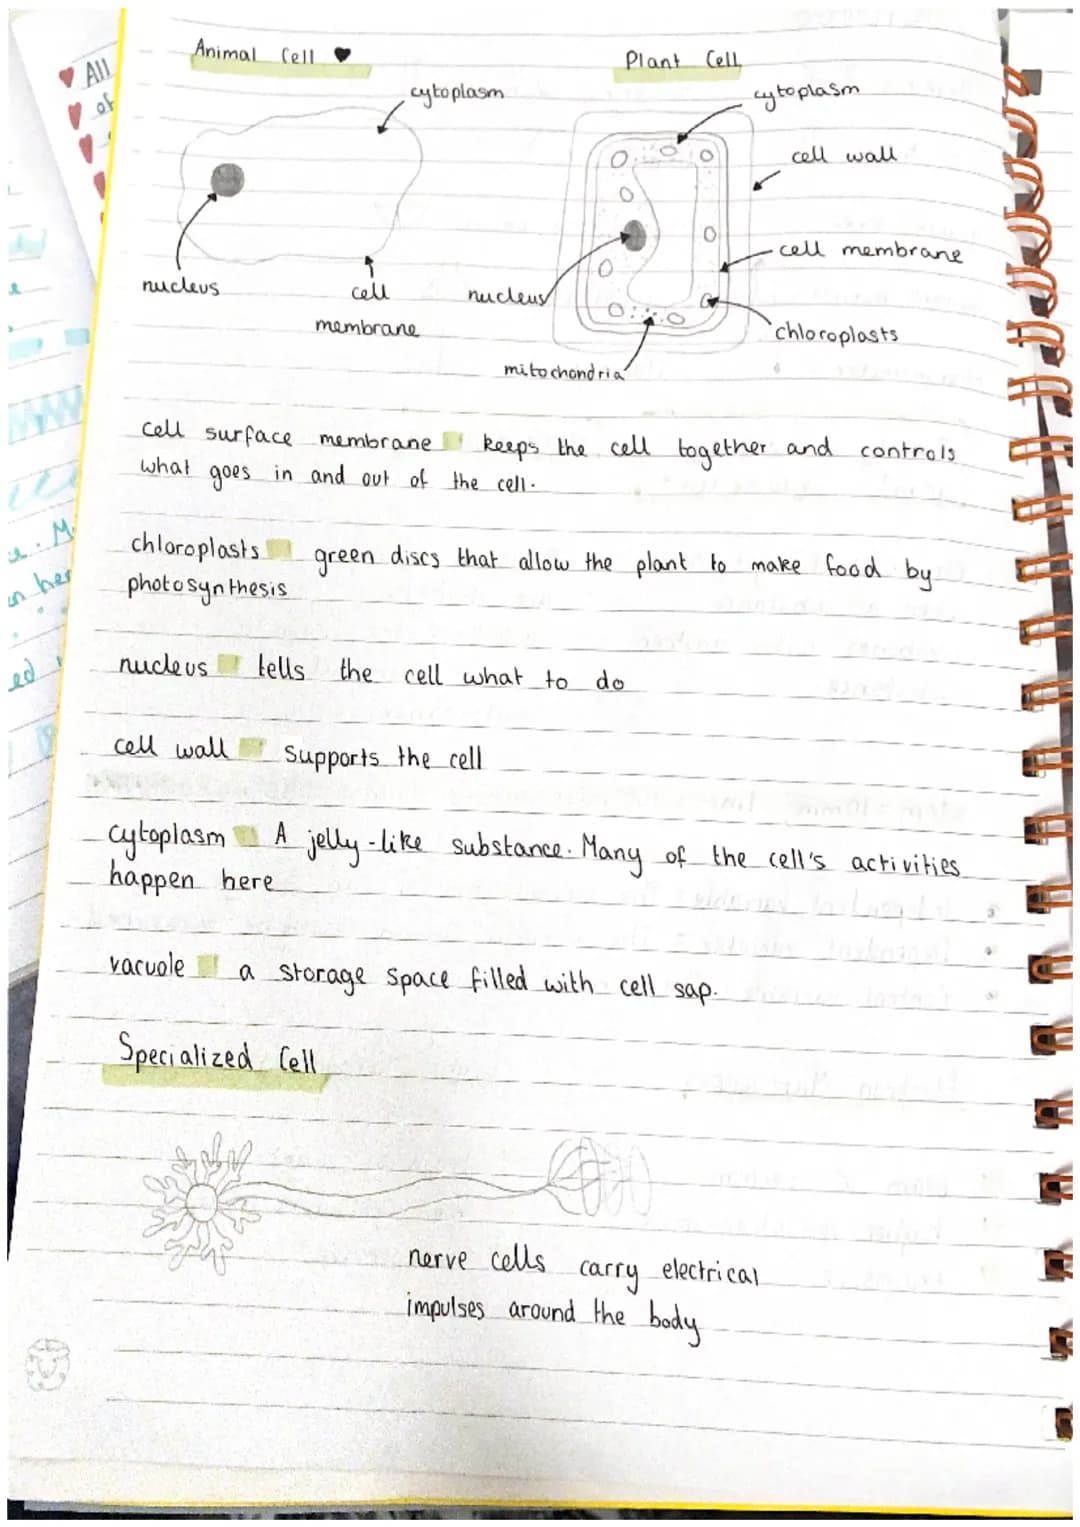 Animal Cell
Plant Cell
cytoplasm
cytoplasm
cell wall
cell membrane
nucleus
cell
membrane
nucleus
chloroplasts
mitochondria
cell surface membrane keeps the cell together and controls
what goes in and out of the cell.
chloroplasts green discs that allow the plant to make food by
photosynthesis
nucleus tells the cell what to do
cell wall supports the cell
cytoplasm A jelly-like substance. Many of the cell's activities
happen here
vacuole a storage space filled with cell sap.
Specialized Cell
nerve cells carry electrical
impulses around the body
All
of